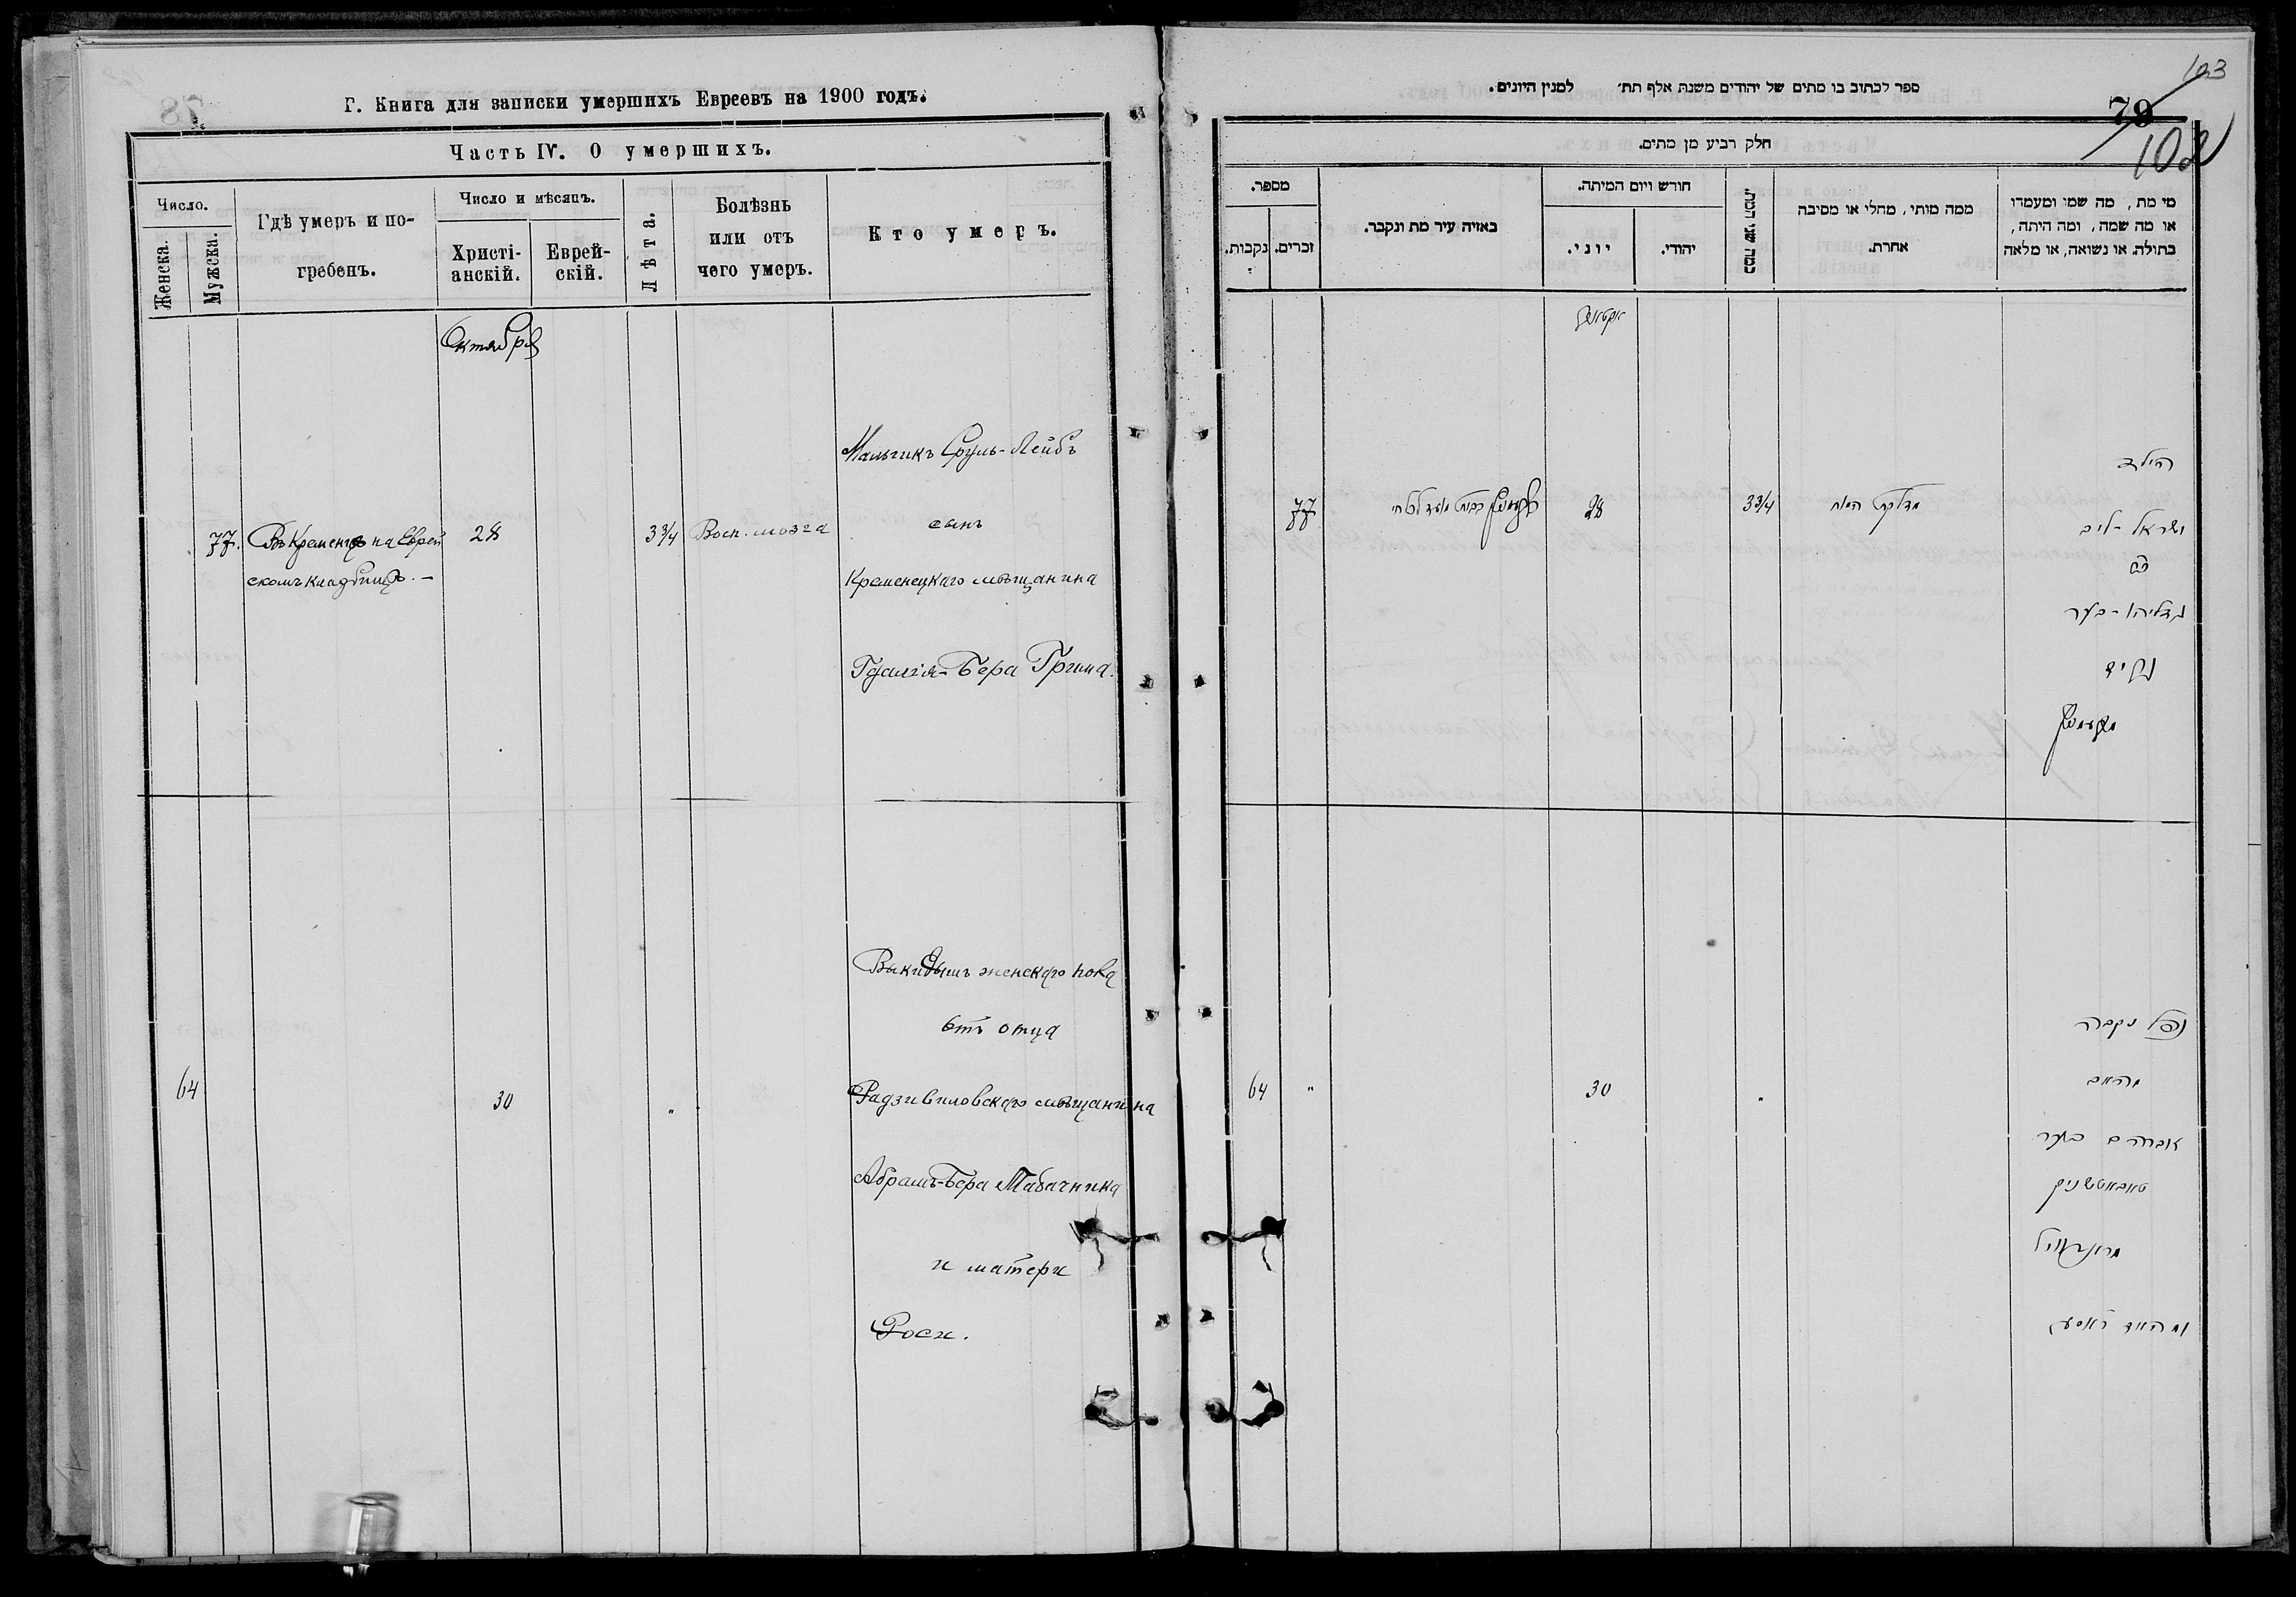 Г. Книга для записки умершихъ Евреевъ на 1900 годъ.
Часть IV. О умершихъ.
Число.
Женска.
Мужска.
Гдѣ умеръ и по-
гребенъ.
Число и мѣсяцъ.
Христі-
анскій.
Еврей-
скій.
Лѣта.
Болѣзнь
или отъ
чего умеръ.
Кто умеръ.
Октября
Мальчикъ Сруль-Лейбъ
77. Въ Кременцѣ на Еврей 28 3¾ Восп. мозга сынъ
скомъ кладбищѣ. – Кременецкаго мѣщанина
Гдалія-Бера
Выкидышъ женскаго пола
отъ отца
64 30 " Радзивиловскаго мѣщанина
Абрамъ-Бера Табачника
и матери
Роси.
ספר לכתוב בו מתים של יהודים משנת אלף תת׳ למנין היונים.
103
79
102
חלק רביע מן מתים.
מספר.
נקבות.
זכרים.
באיזה עיר מת ונקבר.
חורש ויום המיתה.
יוני.
יהודי.
כמה שני המת.
ממה מותי, מחלי או מסיבה
אחרת.
מי מת, מה שמו ומעמדו
או מה שמה, ומה היתה,
בתולה, או נשואה, או מלאה
הילד
77 28 3¾ מדלקת המח
ישראל-ליב
בן
גדליהו-בער
נפל נקבה
מהאב
64 " 30 "
אברהם בער
טאבאטשניק
ומהאם ראסע